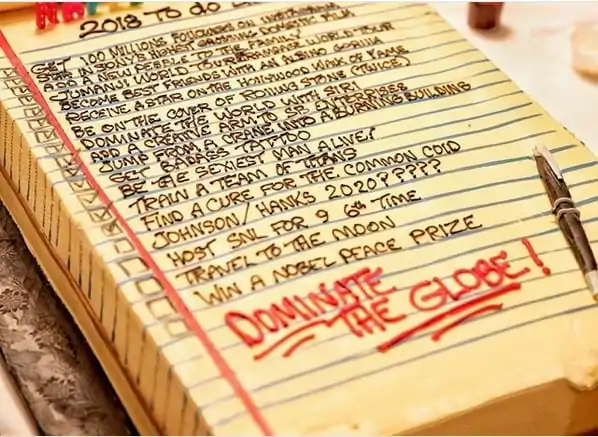 2018 TO DO
GET 100 MILLION FOLLOWERS ON INSTAGRAM
STAR IN SONY'S HIGHEST GROSSING DOMESTIC FILM
ADD A NEW PEEBLE TO THE FAMILY
JUMANJI WORLD TOUR WORLD TOUR
BECOME BEST FRIENDS WITH AN ALBINO GORILLA
RECEIVE A STAR ON THE HOLLYWOOD WALK OF FAME
BE ON THE COVER OF ROLLING STONE (TWICE)
DOMINATE THE WORLD WITH SIRI
ADD A CREATIVE ARM TO ENTERPRISES
JUMP FROM A CRANE INTO A BURNING BUILDING
GET BADASS TATTOO
BE THE SEXIEST MAN ALIVE!
TRAIN A TEAM OF TITANS
FIND A CURE FOR THE COMMON COLD
JOHNSON/HANKS 2020????
HOST SNL FOR 9 6th TIME
TRAVEL TO THE MOON
WIN A NOBEL PEACE PRIZE
DOMINATE
THE GLOBE!